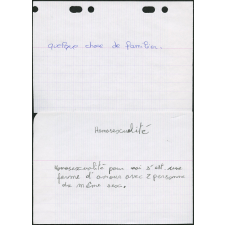 quelque chose de familier.
Homosexualité
Homosexualité pour moi s'est une
forme d'amour avec 2 personne
de même sexe.